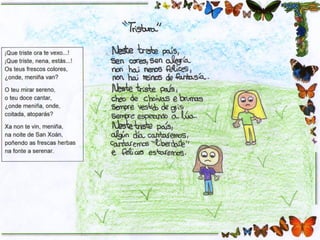 ¡Que triste ora te vexo...!
¡Que triste, nena, estás...!
Os teus frescos colores,
¿onde, meniña van?
O teu mirar sereno,
o teu doce cantar,
¿onde meniña, onde,
coitada, atoparás?
Xa non te vin, meniña,
na noite de San Xoán,
poñendo as frescas herbas
na fonte a serenar.
"Tristura"
Neste triste país,
sen cores, sen alegría
non hai nenos felices,
non hai reinos de fantasía.
Neste triste país,
cheo de choivas e brumas
sempre vestido de gris
sempre esperando a lúa.
Neste triste país,
algún día cantaremos,
cantaremos "Liberdade"
e felices estaremos.